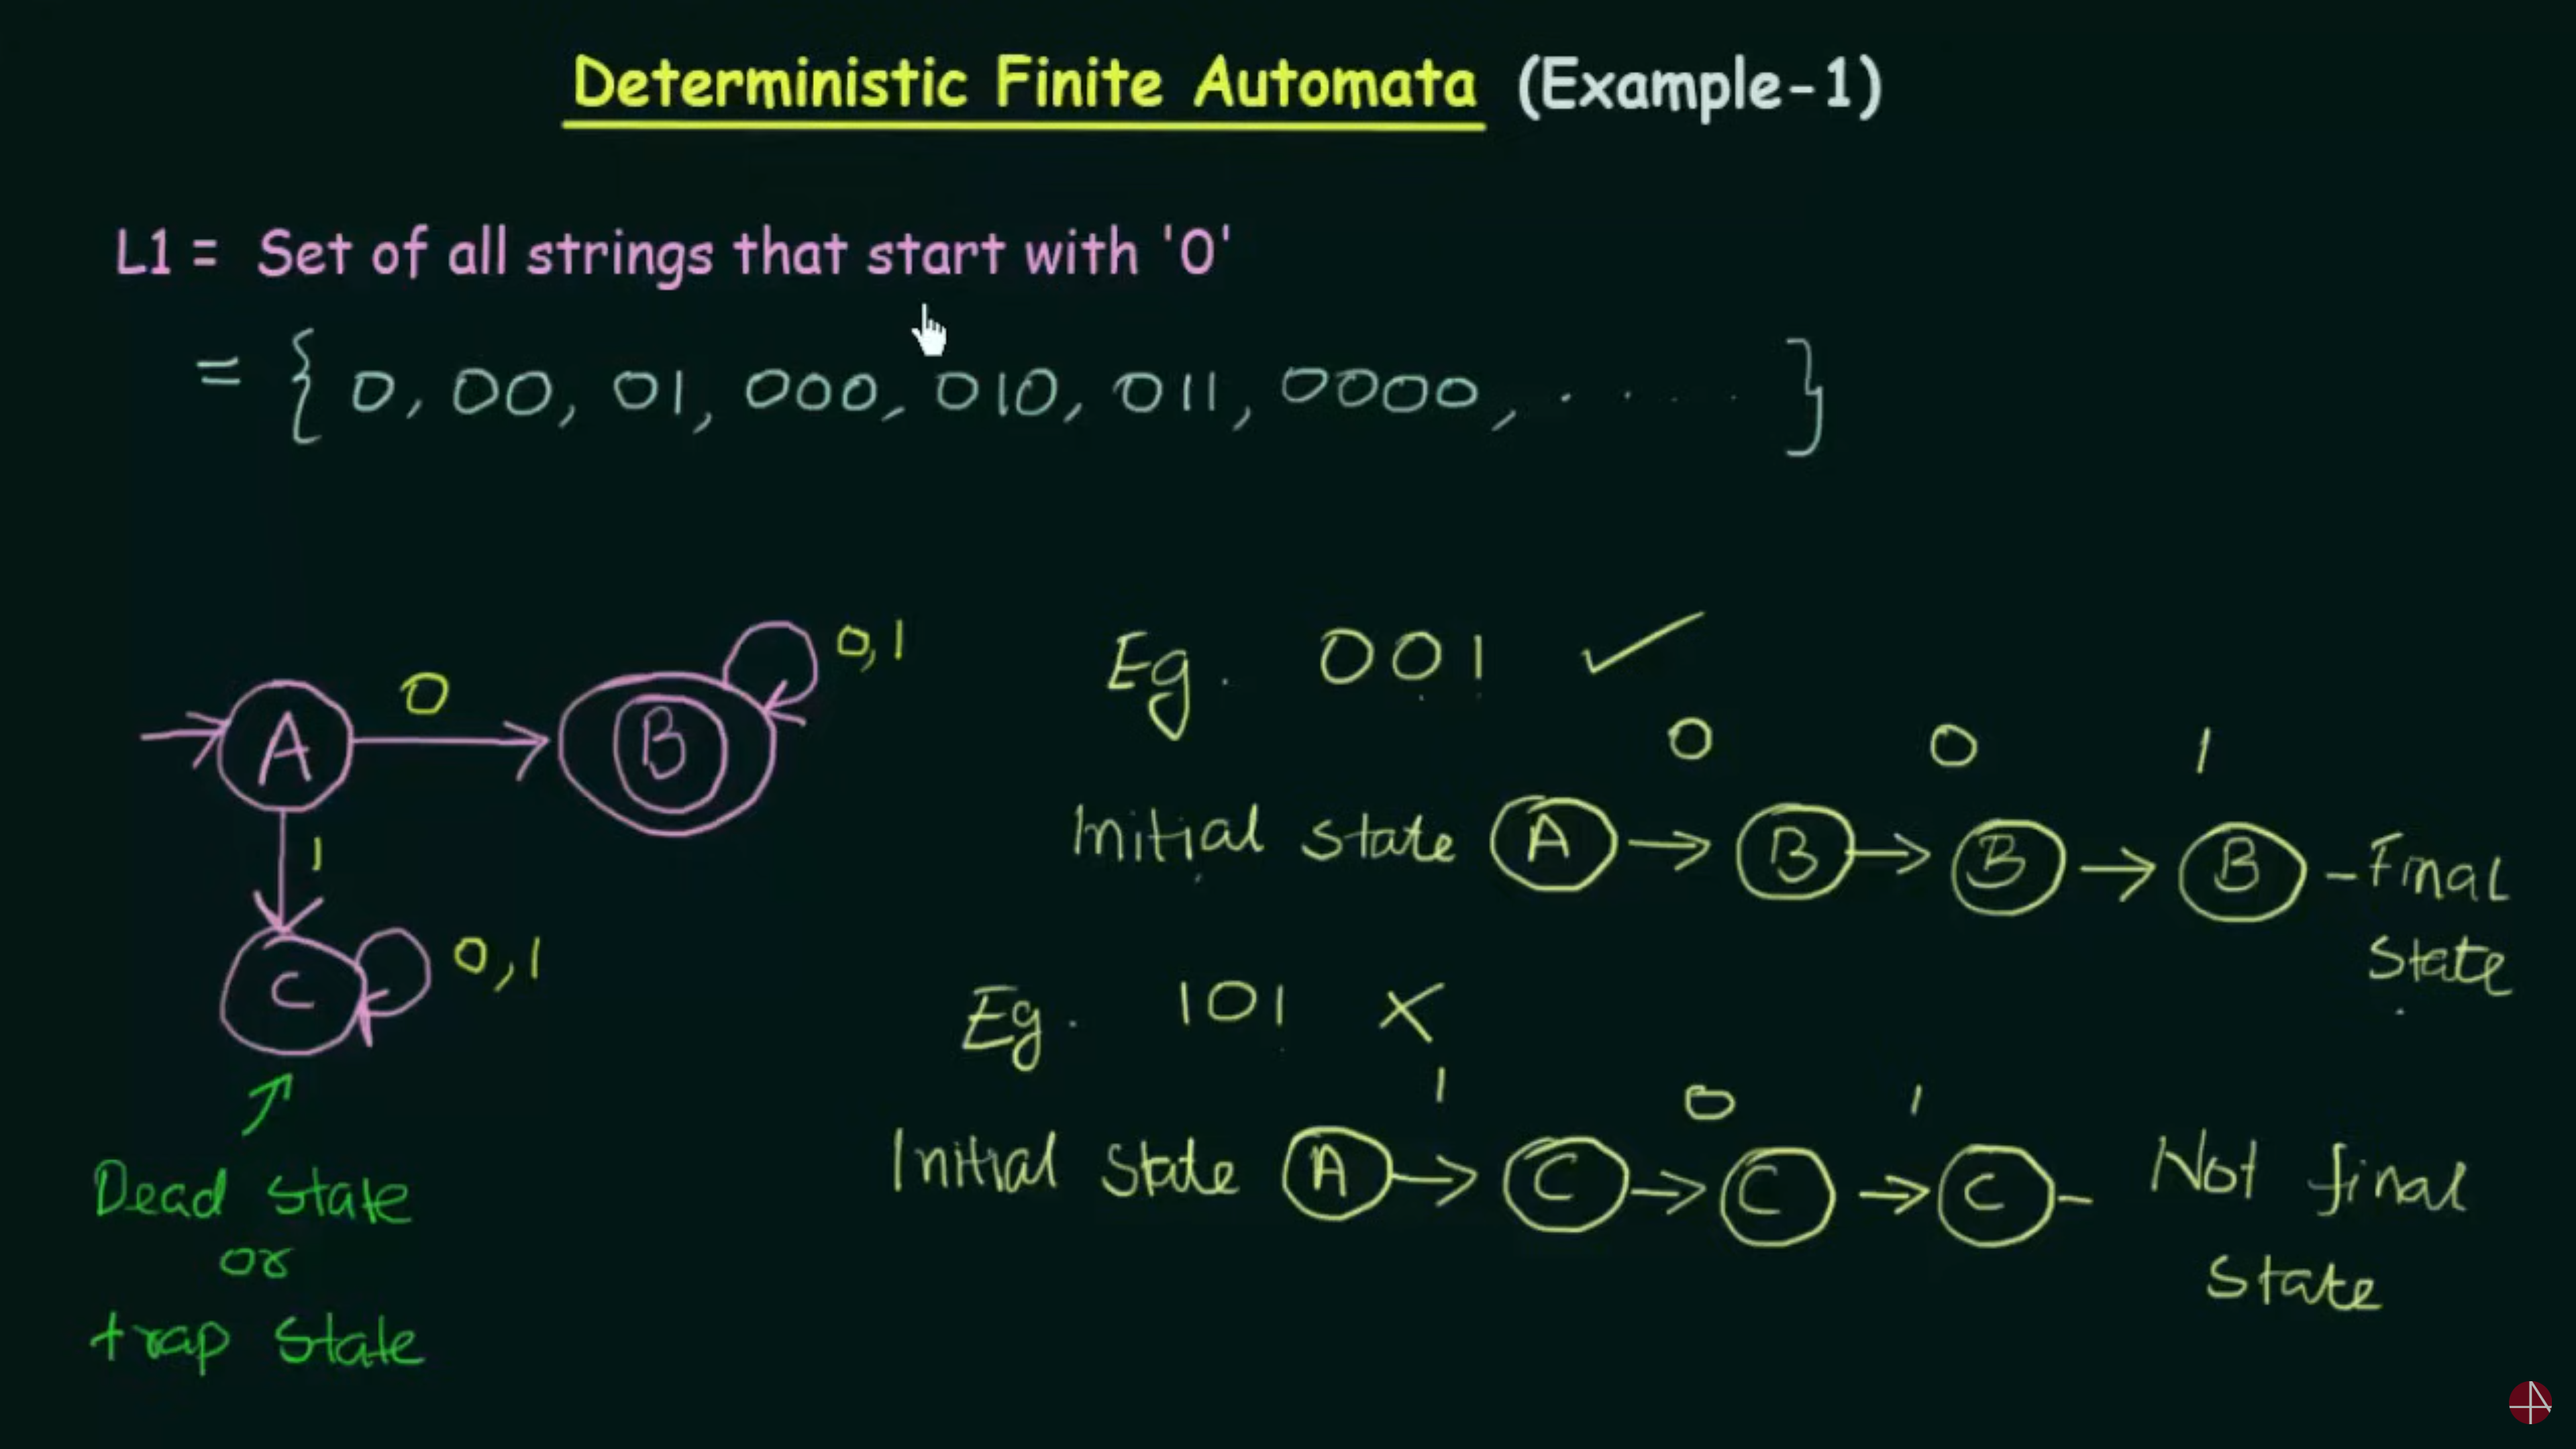 Deterministic Finite Automata (Example-1)
L1 = Set of all strings that start with '0'
= { 0, 00, 01, 000, 010, 011, 0000, ..... }
0,1
0
A
B
1
C
0,1
Dead state
or
trap state
Eg. 001 ✓
0 0 1
Initial state A → B → B → B - Final
state
Eg. 101 X
1 0 1
Initial state A → C → C → C - Not final
state